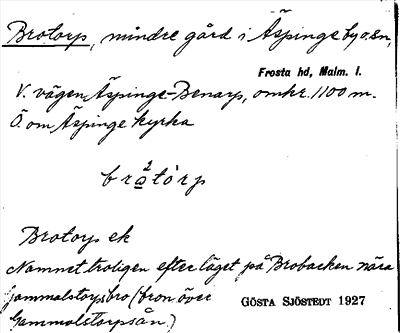 Brotorp, mindre gård i Äspinge by o. sn,
Frosta hd, Malm. l.
V. vägen Äspinge-Benarp, omkr. 1100 m.
Ö. om Äspinge kyrka
bra2tò'rp
Brotorp ek
Namnet troligen efter läget på Brobacken nära
Gammalstorpsbro (bron över
Gammalstorpsån)
GÖSTA SJÖSTEDT 1927